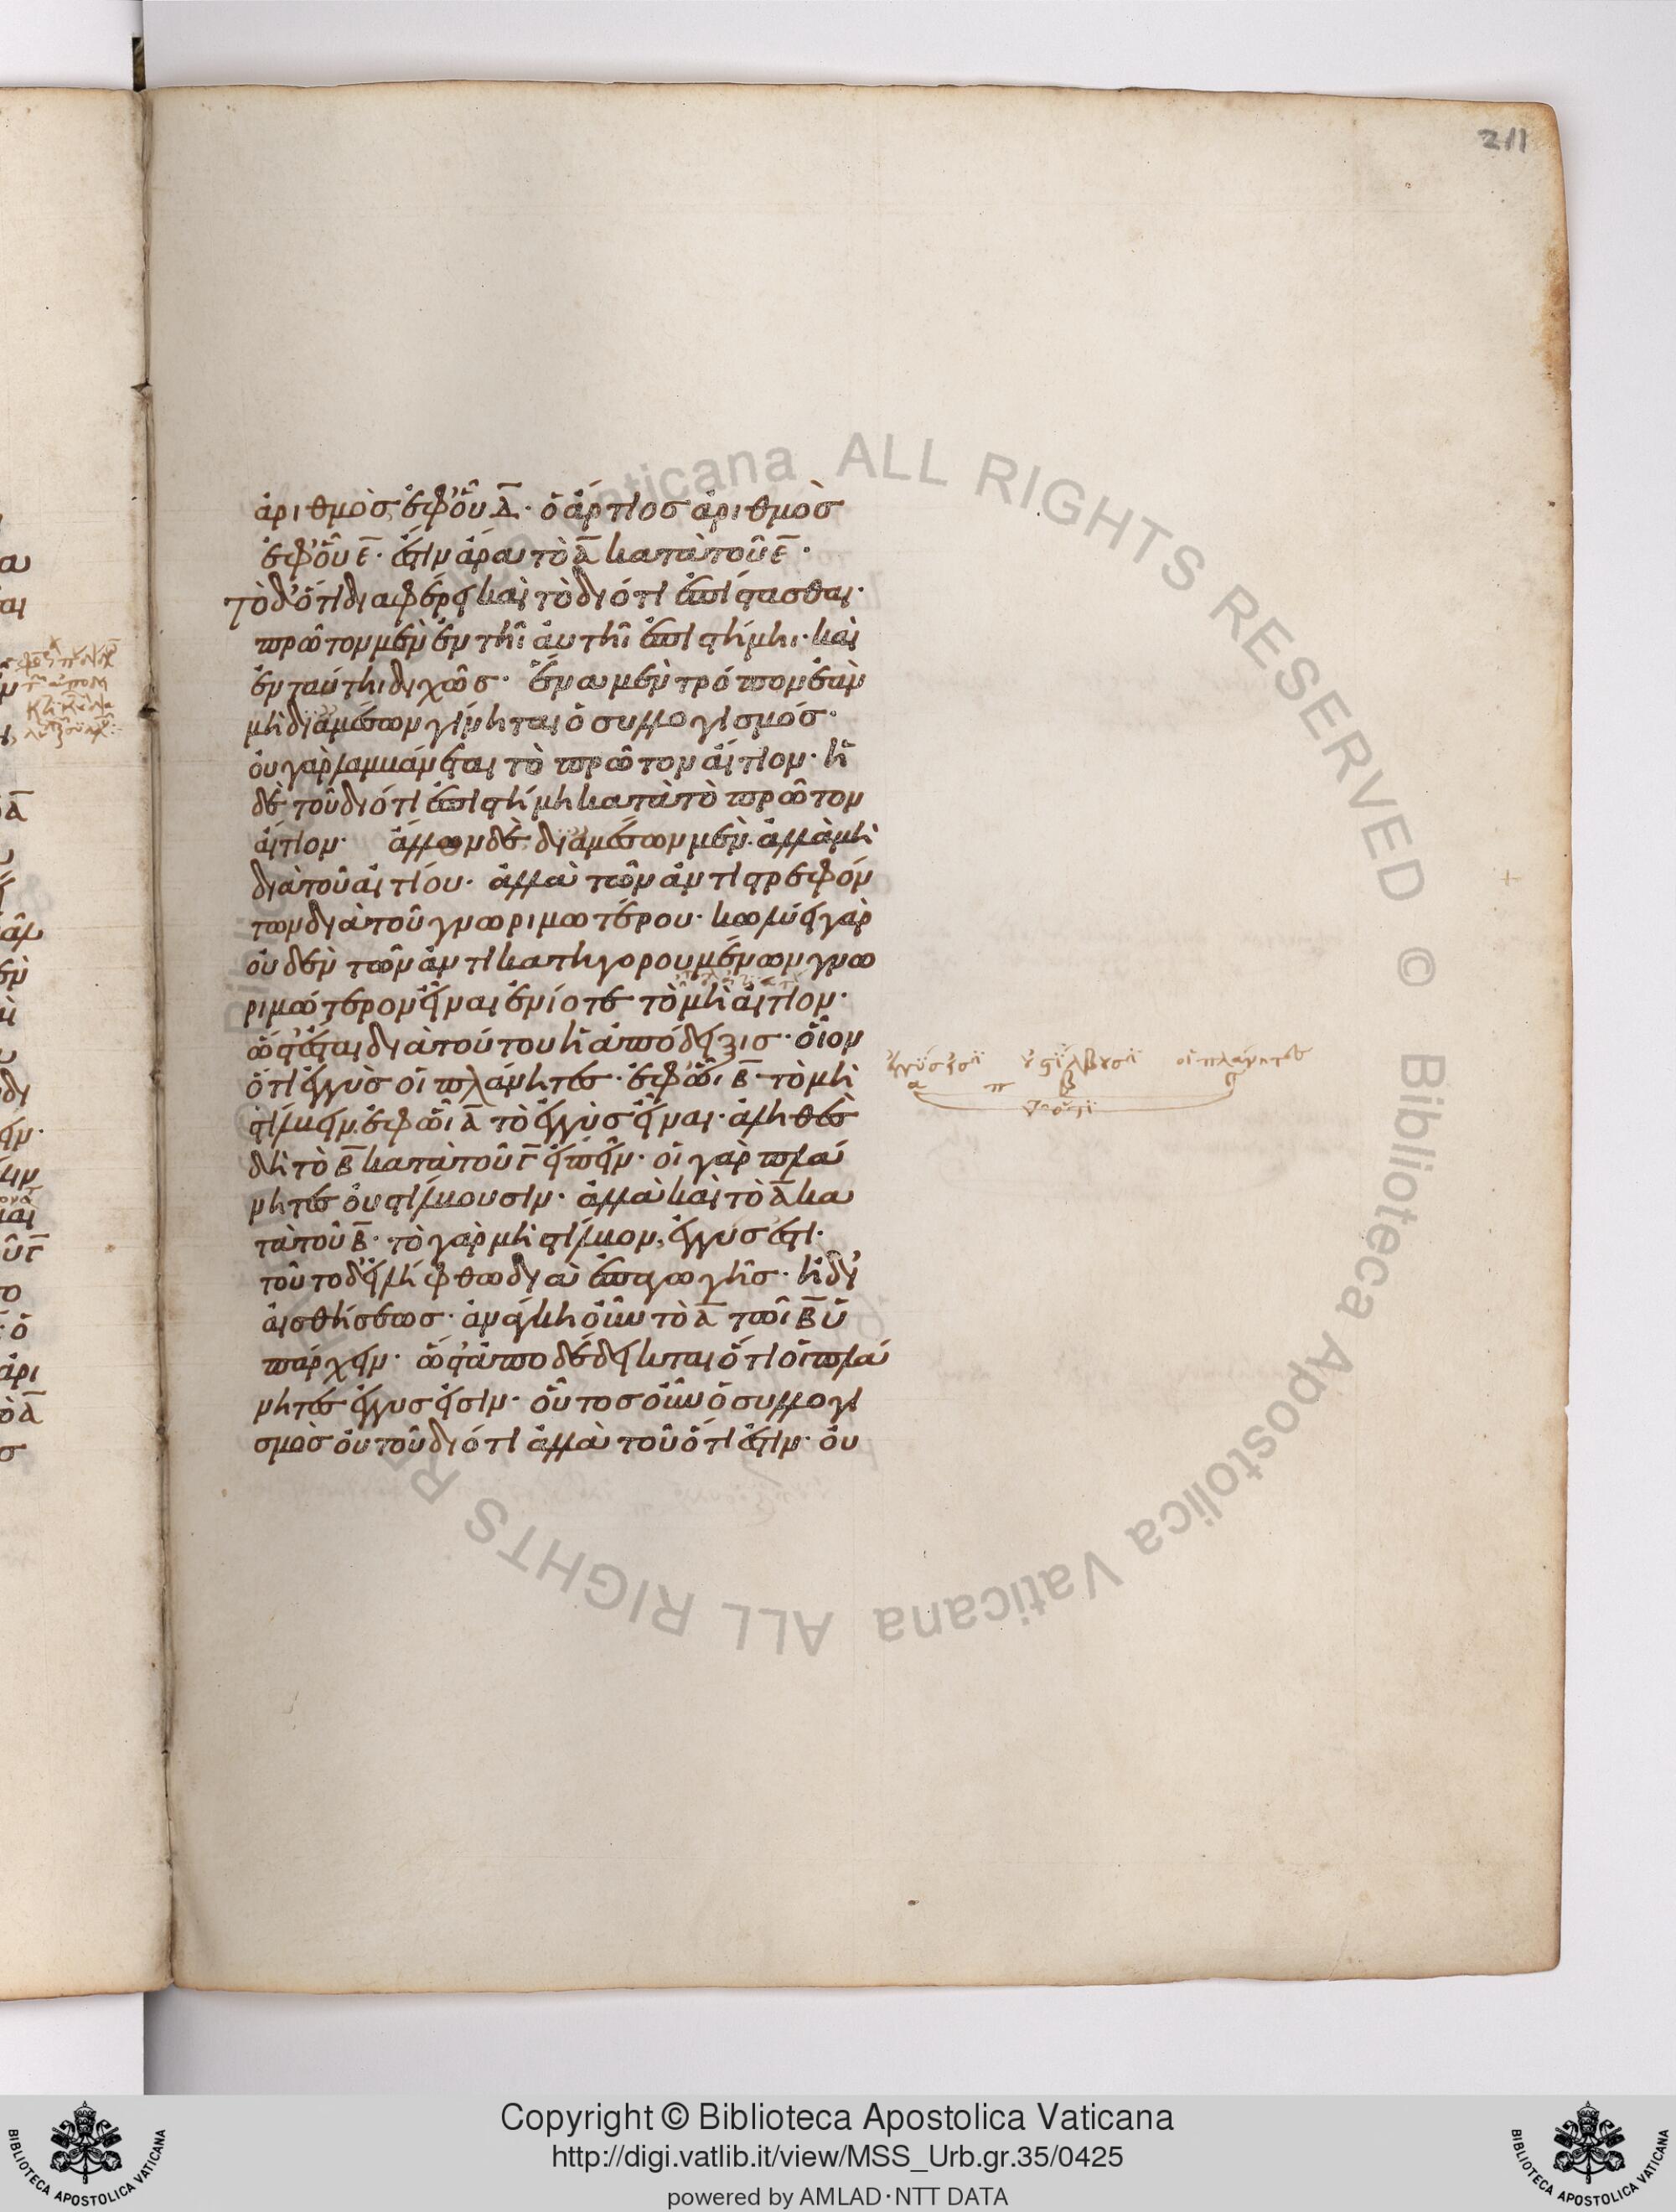 211
ἀριθμὸσ ἐφ' οὗ Δ̅· ὁ ἄρτιος ἀριθμὸσ
ἐφ' οὗ Ε̅· ἔστιν ἄρα τὸ Α̅ κατὰ τοῦ Ε̅·
Τὸ δ' ὅτι διαφέρει καὶ τὸ διότι ἐπίστασθαι·
πρῶτον μὲν ἐν τῆι αὐτῆι ἐπιστήμηι· καὶ
ἐν ταύτηι διχῶς· ἕνα μὲν τρόπον ἐὰν
μὴ δι' ἀμέσων γίνηται ὁ συλλογισμόσ·
οὐ γὰρ λαμβάνεται τὸ πρῶτον αἴτιον· ἡ
δὲ τοῦ διότι ἐπιστήμη κατὰ τὸ πρῶτον
αἴτιον· ἄλλων δὲ δι' ἀμέσων μὲν· ἀλλὰ μὴ
διὰ τοῦ αἰτίου· ἀλλὰ τῶν ἀντιστρεφόν
των διὰ τοῦ γνωριμωτέρου· κωλύει γὰρ
οὐδὲν τῶν ἀντικατηγορουμένων γνω
ριμώτερον εἶναι ἐνίοτε τὸ μὴ αἴτιον·
ὥστ' ἔσται διὰ τούτου ἡ ἀπόδειξισ· οἷον
ὅτι ἐγγὺσ οἱ πλάνητες· ἐφ' ὧι Γ̅
ἐφ' ὧι Β̅· τὸ μὴ
στίλβειν. ἐφ' ὧι Α̅ τὸ ἐγγὺσ εἶναι· ἀληθὲσ
δὴ τὸ Β̅ κατὰ τοῦ Γ̅ εἰπεῖν· οἱ γὰρ πλά
νητες οὐ στίλβουσιν· ἀλλὰ καὶ τὸ Α̅ κα
τὰ τοῦ Β̅· τὸ γὰρ μὴ στίλβον, ἐγγύσ ἐστι·
τοῦτο δ' εἰλήφθω δι' ἐπαγωγῆσ· ἢ δι'
αἰσθήσεωσ· ἀνάγκη οὖν τὸ Α̅ τῶι Β̅ ὑ
πάρχειν· ὥστ' ἀποδέδεικται ὅτι οἱ πλά
νητες ἐγγυσ εἰσιν· οὗτοσ οὖν ὁ συλλογι
σμὸσ οὐ τοῦ διότι ἀλλὰ τοῦ ὅτι ἐστιν· οὐ
οἱ πλάνητες
α π β
Copyright © Biblioteca Apostolica Vaticana
http://digi.vatlib.it/view/MSS_Urb.gr.35/0425
powered by AMLAD·NTT DATA
BIBLIOTECA APOSTOLICA VATICANA
BIBLIOTECA APOSTOLICA VATICANA
ALL RIGHTS RESERVED © Biblioteca Apostolica Vaticana ALL RIGHTS